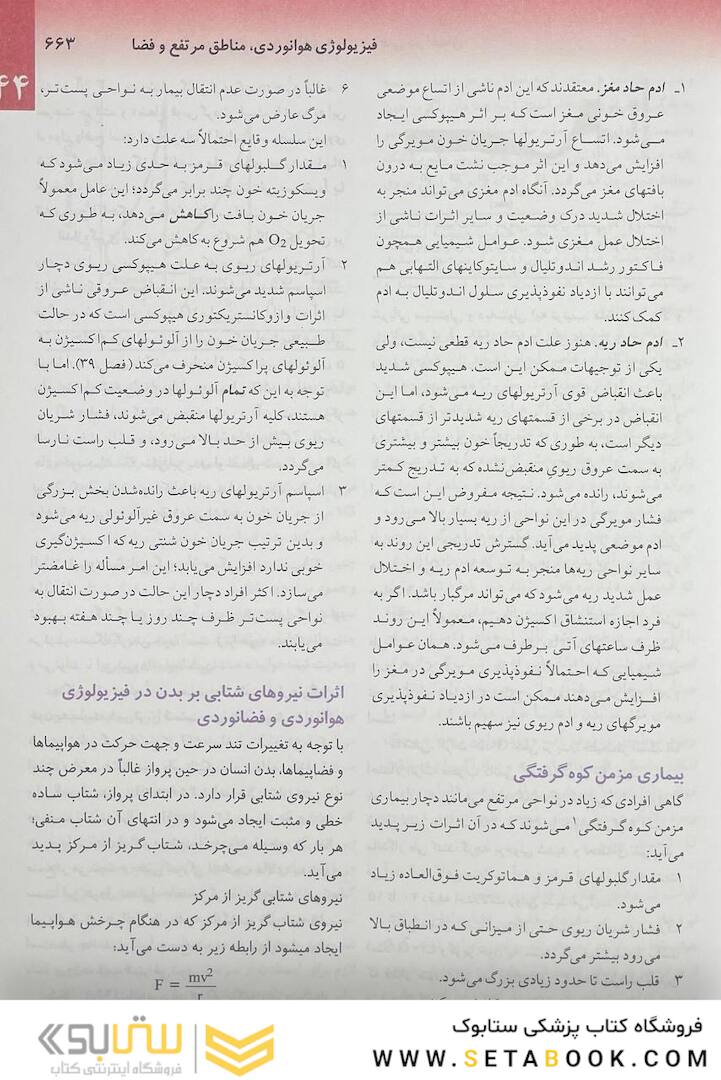 فیزیولوژی هوانوردی، مناطق مرتفع و فضا ۶۶۳
۴۴
۱ـ ادم حاد مغز. معتقدند که این ادم ناشی از اتساع موضعی
عروق خونی مغز است که بر اثر هیپوکسی ایجاد
می‌شود. اتساع آرتریولها جریان خون مویرگی را
افزایش می‌دهد و این اثر موجب نشت مایع به درون
بافتهای مغز می‌گردد. آنگاه ادم مغزی می‌تواند منجر به
اختلال شدید درک وضعیت و سایر اثرات ناشی از
اختلال عمل مغزی شود. عوامل شیمیایی همچون
فاکتور رشد اندوتلیال و سایتوکاینهای التهابی هم
می‌توانند با ازدیاد نفوذپذیری سلول اندوتلیال به ادم
کمک کنند.
۲ـ ادم حاد ریه. هنوز علت ادم حاد ریه قطعی نیست، ولی
یکی از توجیهات ممکن این است. هیپوکسی شدید
باعث انقباض قوی آرتریولهای ریه می‌شود، اما این
انقباض در برخی از قسمتهای ریه شدیدتر از قسمتهای
دیگر است، به طوری که تدریجاً خون بیشتر و بیشتری
به سمت عروق ریویِ منقبض‌نشده که به تدریج کمتر
می‌شوند، رانده می‌شود. نتیجه مفروض این است که
فشار مویرگی در این نواحی از ریه بسیار بالا می‌رود و
ادم موضعی پدید می‌آید. گسترش تدریجی این روند به
سایر نواحی ریه‌ها منجر به توسعه ادم ریه و اختلال
عمل شدید ریه می‌شود که می‌تواند مرگبار باشد. اگر به
فرد اجازه استنشاق اکسیژن دهیم، معمولاً این روند
ظرف ساعتهای آتی برطرف می‌شود. همان عوامل
شیمیایی که احتمالاً نفوذپذیری مویرگی در مغز را
افزایش می‌دهند ممکن است در ازدیاد نفوذپذیری
مویرگهای ریه و ادم ریوی نیز سهیم باشند.
بیماری مزمن کوه گرفتگی
گاهی افرادی که زیاد در نواحی مرتفع می‌مانند دچار بیماری
مزمن کوه گرفتگی۱ می‌شوند که در آن اثرات زیر پدید
می‌آید:
۱ مقدار گلبولهای قرمز و هماتوکریت فوق‌العاده زیاد
می‌شود.
۲ فشار شریان ریوی حتی از میزانی که در انطباق بالا
می‌رود بیشتر می‌گردد.
۳ قلب راست تا حدود زیادی بزرگ می‌شود.
۶ غالباً در صورت عدم انتقال بیمار به نواحی پست‌تر،
مرگ عارض می‌شود.
این سلسله وقایع احتمالاً سه علت دارد:
۱ مقدار گلبولهای قرمز به حدی زیاد می‌شود که
ویسکوزیته خون چند برابر می‌گردد؛ این عامل معمولاً
جریان خون بافت را کاهش می‌دهد، به طوری که
تحویل O2 هم شروع به کاهش می‌کند.
۲ آرتریولهای ریوی به علت هیپوکسی ریوی دچار
اسپاسم شدید می‌شوند. این انقباض عروقی ناشی از
اثرات وازوکانستریکتوری هیپوکسی است که در حالت
طبیعی جریان خون را از آلوئولهای کم‌اکسیژن به
آلوئولهای پراکسیژن منحرف می‌کند (فصل ۳۹). اما با
توجه به این که تمام آلوئولها در وضعیت کم‌اکسیژن
هستند، کلیه آرتریولها منقبض می‌شوند، فشار شریان
ریوی بیش از حد بالا می‌رود، و قلب راست نارسا
می‌گردد.
۳ اسپاسم آرتریولهای ریه باعث رانده‌شدن بخش بزرگی
از جریان خون به سمت عروق غیرآلوئولی ریه می‌شود
و بدین ترتیب جریان خون شنتی ریه که اکسیژن‌گیری
خوبی ندارد افزایش می‌یابد؛ این امر مسأله را غامضتر
می‌سازد. اکثر افراد دچار این حالت در صورت انتقال به
نواحی پست‌تر ظرف چند روز یا چند هفته بهبود
می‌یابند.
اثرات نیروهای شتابی بر بدن در فیزیولوژی
هوانوردی و فضانوردی
با توجه به تغییرات تند سرعت و جهت حرکت در هواپیماها
و فضاپیماها، بدن انسان در حین پرواز غالباً در معرض چند
نوع نیروی شتابی قرار دارد. در ابتدای پرواز، شتاب ساده
خطی و مثبت ایجاد می‌شود و در انتهای آن شتاب منفی؛
هر بار که وسیله می‌چرخد، شتاب گریز از مرکز پدید
می‌آید.
نیروهای شتابی گریز از مرکز
نیروی شتاب گریز از مرکز که در هنگام چرخش هواپیما
ایجاد میشود از رابطه زیر به دست می‌آید:
F = mv²
r
فروشگاه کتاب پزشکی ستابوک
WWW.SETABOOK.COM
ستابوک
فروشگاه اینترنتی کتاب